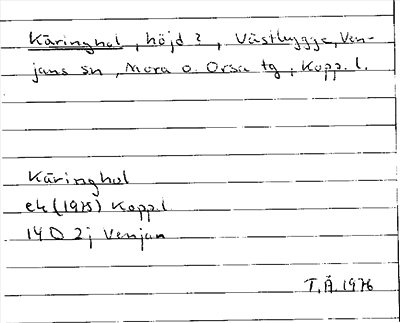 Käringhol, höjd?, Västbygge, Ven-
jans sn, Mora o. Orsa tg, Kopp. l.
Käringhol
ek (1975) Kopp. l
14 D 2j Venjan
T.Å. 1976